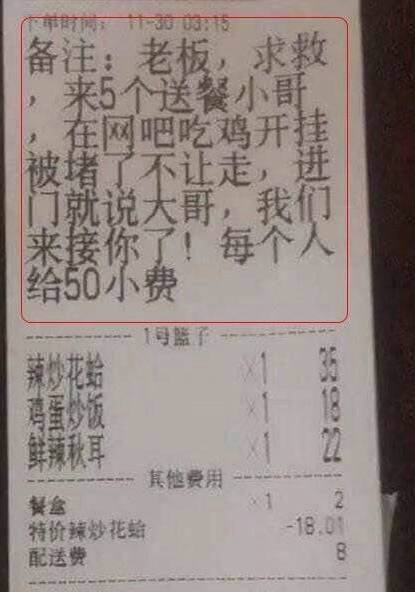 下单时间： 11-30 03:15
备注： 老板，求救
，来5个送餐小哥
，在网吧吃鸡开挂
被堵了不让走，进
门就说大哥，我们
来接你了！每个人
给50小费
1号篮子
辣炒花蛤 ×1 35
鸡蛋炒饭 ×1 18
鲜辣秋耳 ×1 22
其他费用
餐盒 ×1 2
特价辣炒花蛤 -18.01
配送费 8